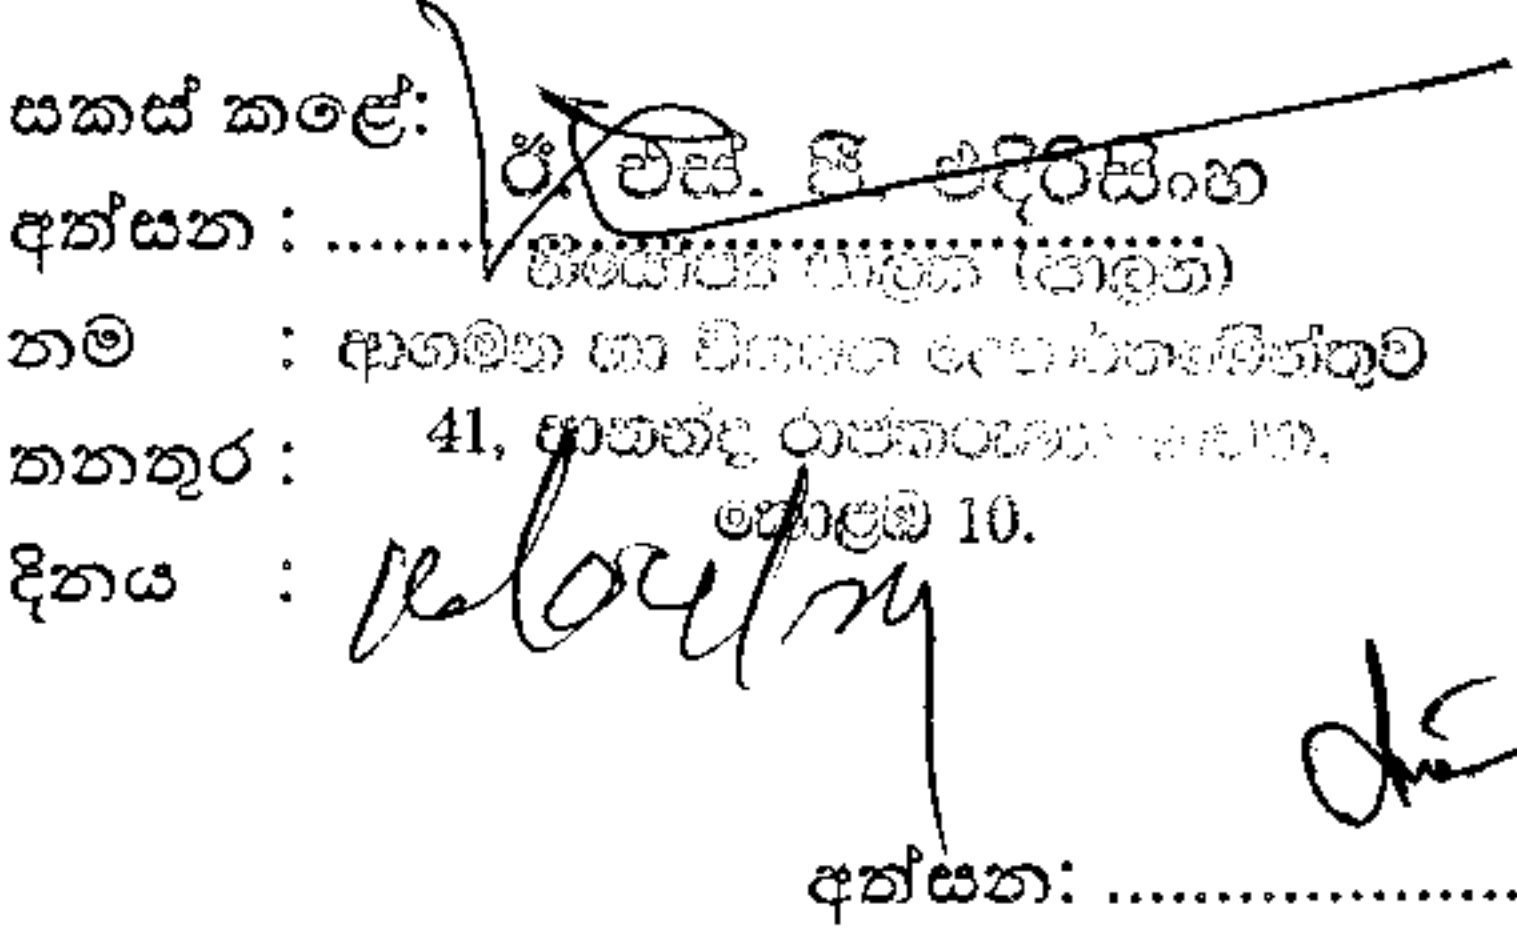 සකස් කළේ:
ඊ. එස්. පී. එදිරිසිංහ
අත්සන : ....................
නියෝජ්‍ය පාලක (පාලන)
නම : ආගමන හා විගමන දෙපාර්තමේන්තුව
තනතුර : 41, ආනන්ද රාජකරුණා මාවත,
කොළඹ 10.
දිනය :
අත්සන: ....................